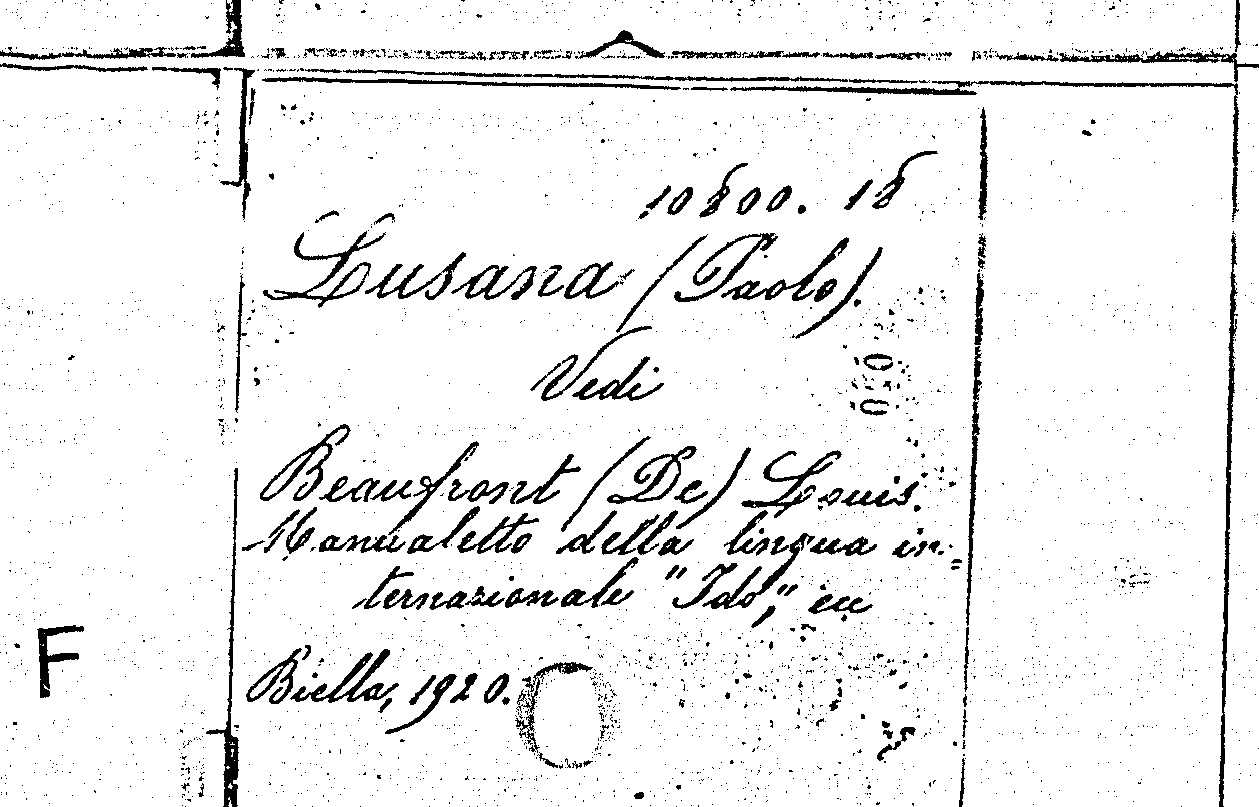 10800. 18
Lusana (Paolo).
Vedi
Beaufront (De) Louis.
Manualetto della lingua in=
ternazionale "Ido", ecc
Biella, 1920.
F